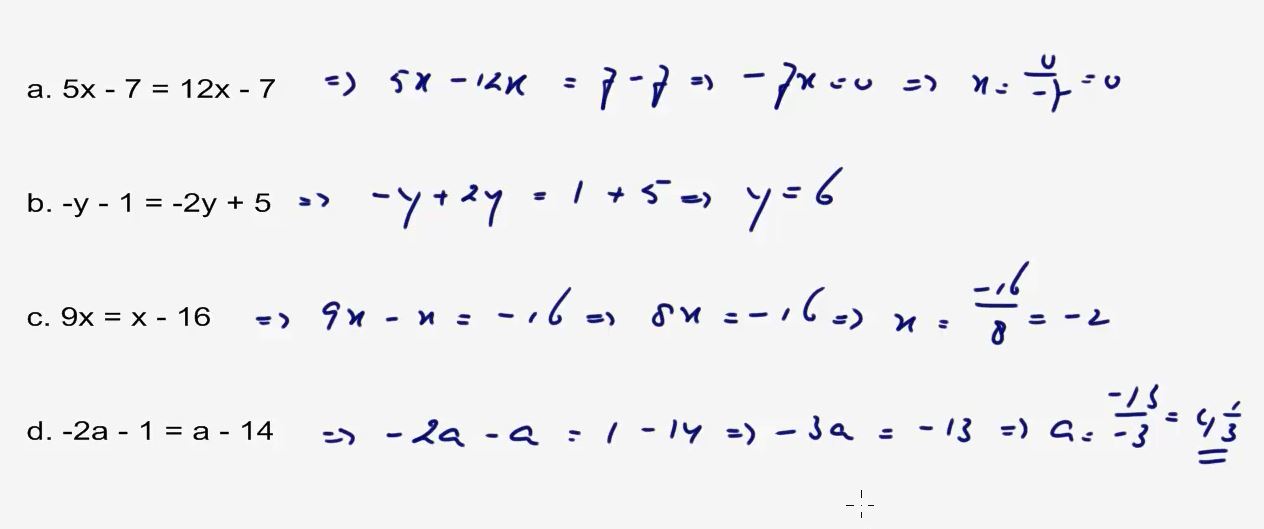 a. 5x - 7 = 12x - 7 => 5x - 12x = 7 - 7 => -7x = 0 => x = 0/-7 = 0
b. -y - 1 = -2y + 5 => -y + 2y = 1 + 5 => y = 6
c. 9x = x - 16 => 9x - x = -16 => 8x = -16 => x = -16/8 = -2
d. -2a - 1 = a - 14 => -2a - a = 1 - 14 => -3a = -13 => a = -13/-3 = 4 1/3